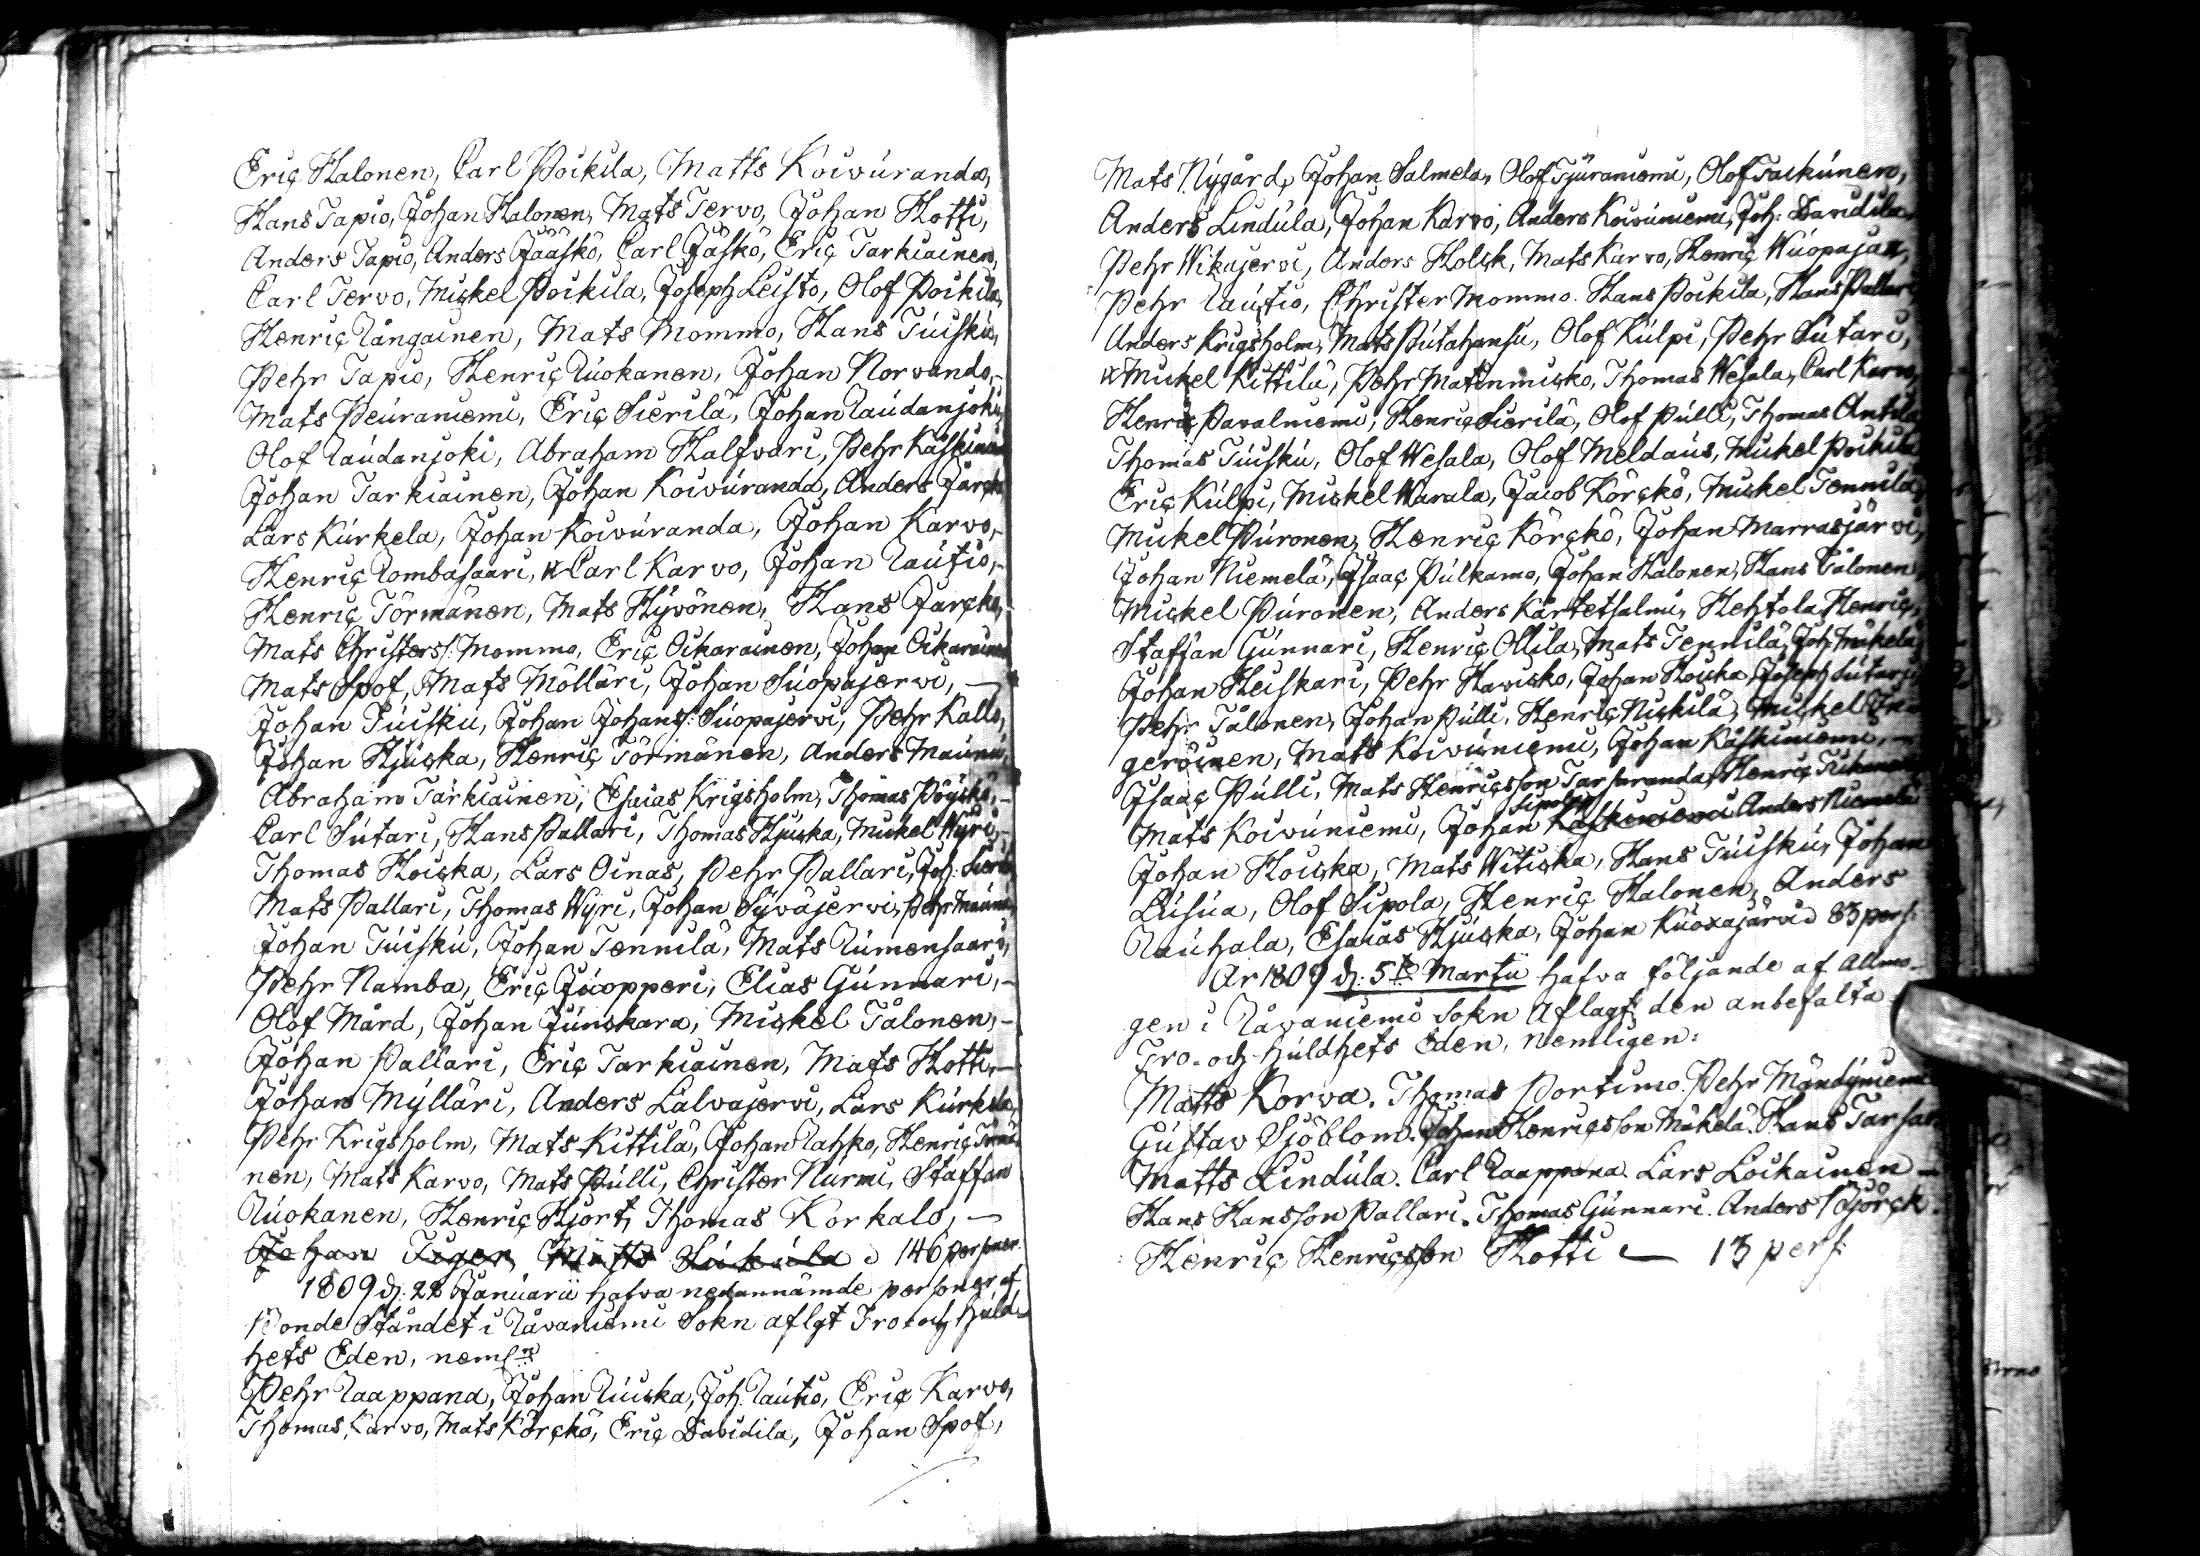 Eric Halonen, Carl Poikila, Matts Koivuranda,
Hans Tapio, Johan Halonen, Mats Tervo, Johan Hotti,
Anders Tapio, Anders Jääskö, Carl Jäskö, Eric Tarkiainen,
Carl Tervo, Mickel Poikila, Joseph Leisto, Olof Poikila,
Henric Rångainen, Mats Mommo, Hans Tuisku,
Pehr Tapio, Henric Ruokanen, Johan Norvando,
Mats Peuraniemi, Eric Sierilä, Johan Raudanjoki,
Olof Raudanjoki, Abraham Halfvari, Pehr
Johan Tarkiainen, Johan Koivuranda, Anders
Lars Kurkela, Johan Koivuranda, Johan Karvo,
Henric Lombasaari, Carl Karvo, Johan Rautio,
Henric Törmänen, Mats Hyvönen, Hans Jarcko,
Mats Christerss: Mommo, Eric Oikarainen, Johan Oikarainen
Mats Spof, Mats Mölläri, Johan Suopajervi, —
Johan Tuisku, Johan Johanss: Suopajervi, Pehr Kallo,
Johan Hjuska, Henric Törmänen, Anders Maunu,
Abraham Tarkiainen, Esaias Krigsholm, Thomas Pöyskö,
Carl Sutari, Hans Pallari, Thomas Hjuska, Mickel Wyri,
Thomas Hoicka, Lars Oinas, Pehr Pallari, Joh:
Mats Pallari, Thomas Wyri, Johan Syväjervi, Pehr Maunu,
Johan Tuisku, Johan Tennilä, Mats Lumensaari,
Pehr Namba, Eric Juopperi, Elias Gunnari,
Olof Mård, Johan Junskara, Mickel Tålonen,
Johan Pallari, Eric Tarkiainen, Mats Hotti,
Johan Myllari, Anders Lalvajervi, Lars Kurkela,
Pehr Krigsholm, Mats Kittilä, Johan Rahko, Henric
nen, Mats Karvo, Mats Pulli, Christer Nurmi, Staffan
Ruokanen, Henric Hjort, Thomas Korkalo, —
Johan Matts 146 personer
1809 d: 22 Januarii hafva nedannämde personer af
Bonde Ståndet i Råvaniemi Sokn aflgt Tro och Huld-
hets Eden, neml:n
Pehr Raappana, Johan Ruiska, Joh: Rautio, Eric Karvo,
Thomas Karvo, Mats Körckö, Eric Davidila, Johan Spof,
Mats Nygård, Johan Salmela, Olof Tjuraniemi, Olof Taskinen,
Anders Lindula, Johan Karvo, Anders Koivuniemi, Joh: Davidila
Pehr Wikajervi, Anders Holck, Mats Karvo, Henric Wuopajan,
Pehr Rautio, Christer Mommo. Hans Poikila, Hans Pallari
Anders Krigsholm, Mats Putahansu, Olof Kulpi, Pehr Sutari,
Mickel Kittilä, Pehr Matinmicko, Thomas Wesala, Carl Karvo,
Henric Pavalniemi, Henric Sierilä, Olof Pulli, Thomas Antila
Thomas Tuisku, Olof Wesala, Olof Meldaus, Mickel Poikila
Eric Kulpi, Mickel Warala, Jacob Körckö, Mickel Tennilä,
Mickel Puronen, Henric Körckö, Johan Marrasjärvi,
Johan Niemelä, Isaac Pulkamo, Johan Halonen, Hans Tålonen
Mickel Puronen, Anders Kärtetsalmi, Hehtola Henric,
Staffan Gunnari, Henric Ollila, Mats Tennilä, Joh: Mäkelä
Johan Heiskari, Pehr Havisko, Johan Houka, Joseph Sutari,
Pehr Tålonen, Johan Pulli, Henric Niskilä, Mickel
geröinen, Mats Koivuniemi, Johan Käskiniemi,
Isaac Pulli, Mats Henricsson Tarsaranda, Henric
Sipola
Mats Koivuniemi, Johan Käskiniemi Anders Niemelä
Johan Hoicka, Mats Witicka, Hans Tuisku, Johan
Luisua, Olof Sipola, Henric Halonen, Anders
Rauhala, Esaias Hjuska, Johan Kuoxajärvi 83 pers:
År 1809 d: 5te Martii hafva följande af Allmo-
gen i Råvaniemi Sokn Aflagt den anbefalta
Tro- och Huldhets Eden, nemligen:
Matts Korva. Thomas Portimo. Pehr Mändyniemi
Gustav Sjöblom. Johan Henricsson Mäkelä. Hans Tarsar
Matts Lindula. Carl Raappana. Lars Loikainen —
Hans Hansson Pallari. Thomas Gunnari. Anders Björck.
Henric Henricsson Hotti — 13 pers: